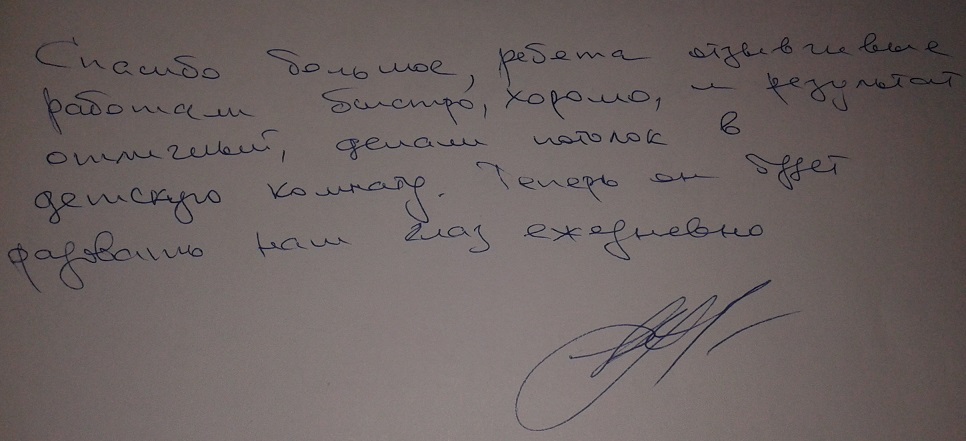 Спасибо большое, ребята отзывчивые
работали быстро, хорошо, и результат
отличный, делали потолок в
детскую комнату. Теперь он будет
радовать наш глаз ежедневно